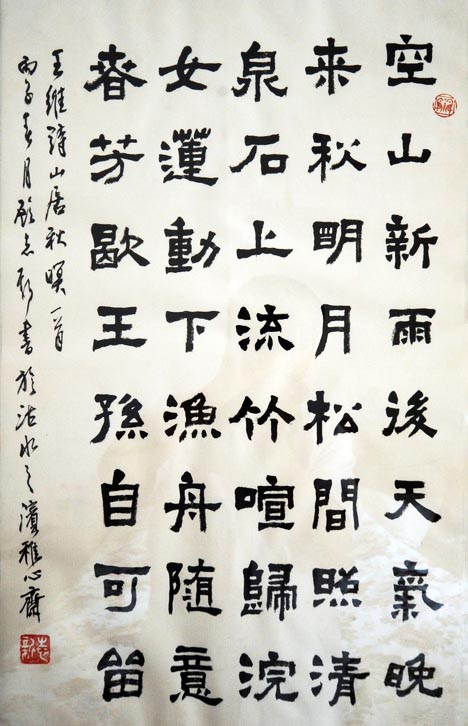 空山新雨後天氣晚
来秋明月松間照清
泉石上流竹喧歸浣
女蓮動下漁舟随意
春芳歇王孫自可留
王維詩山居秋暝一首
丙子春月顧志新書於沽水之濱雅心齋